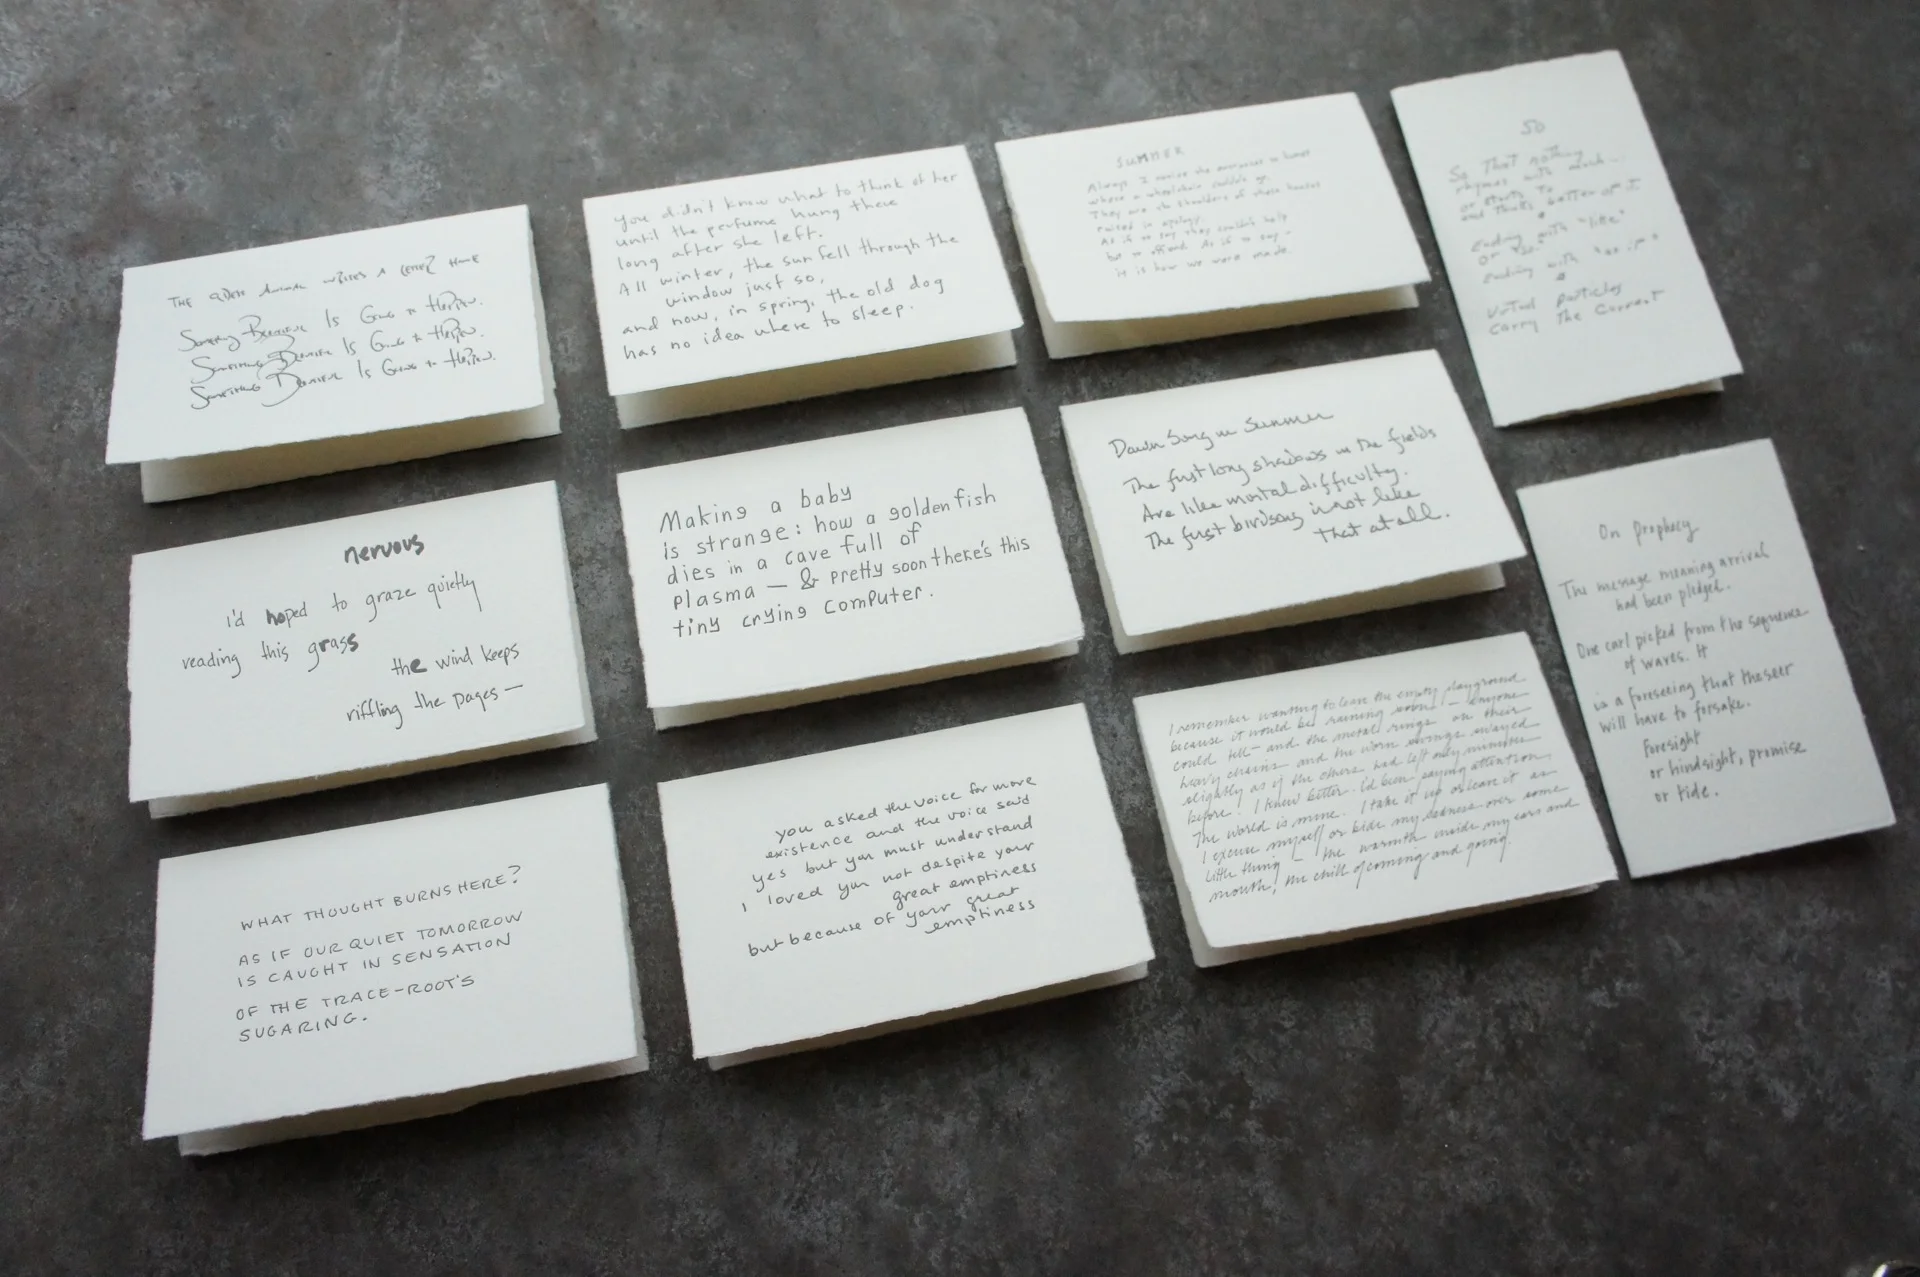 THE ANIMAL WRITES A LETTER HOME
Something Beautiful Is Going to Happen.
Something Beautiful Is Going to Happen.
Something Beautiful Is Going to Happen.
you didn't know what to think of her
until the perfume hung there
long after she left.
All winter, the sun fell through the
window just so,
and now, in spring, the old dog
has no idea where to sleep.
SUMMER
Always I notice the entrances to homes
where a wheelchair couldn't go.
They are the shoulders of these houses
raised in apology.
As if to say they couldn't help
but to offend. As if to say –
it is how we were made.
SO
So that nothing
rhymes with much...
or starts to
and thinks better of it.
Ending with "like"
or "so."
Ending with "as if"
Virtual particles
carry the current
nervous
i'd hoped to graze quietly
reading this grass
the wind keeps
riffling the pages —
Making a baby
is strange: how a golden fish
dies in a cave full of
plasma — & pretty soon there's this
tiny crying computer.
Dawn Song in Summer
The first long shadows in the fields
Are like mortal difficulty.
The first birdsong is not like
that at all.
On Prophecy
The message meaning arrival
had been pledged.
One curl picked from the sequence
of waves. It
is a foreseeing that the seer
will have to forsake.
Foresight
or hindsight, promise
or tide.
WHAT THOUGHT BURNS HERE?
AS IF OUR QUIET TOMORROW
IS CAUGHT IN SENSATION
OF THE TRACE-ROOT'S
SUGARING.
you asked the voice for more
existence and the voice said
yes but you must understand
i loved you not despite your
great emptiness
but because of your great
emptiness
I remember wanting to leave the empty playground
because it would be raining soon – anyone
could tell – and the metal rings on their
heavy chains and the worn swings swayed
slightly as if the others had left only minutes
before. I knew better. I'd been paying attention.
The world is mine. I take it up or leave it as
I excuse myself or hide my sadness over some
little thing – the warmth inside my ears and
mouth, the chill of coming and going.